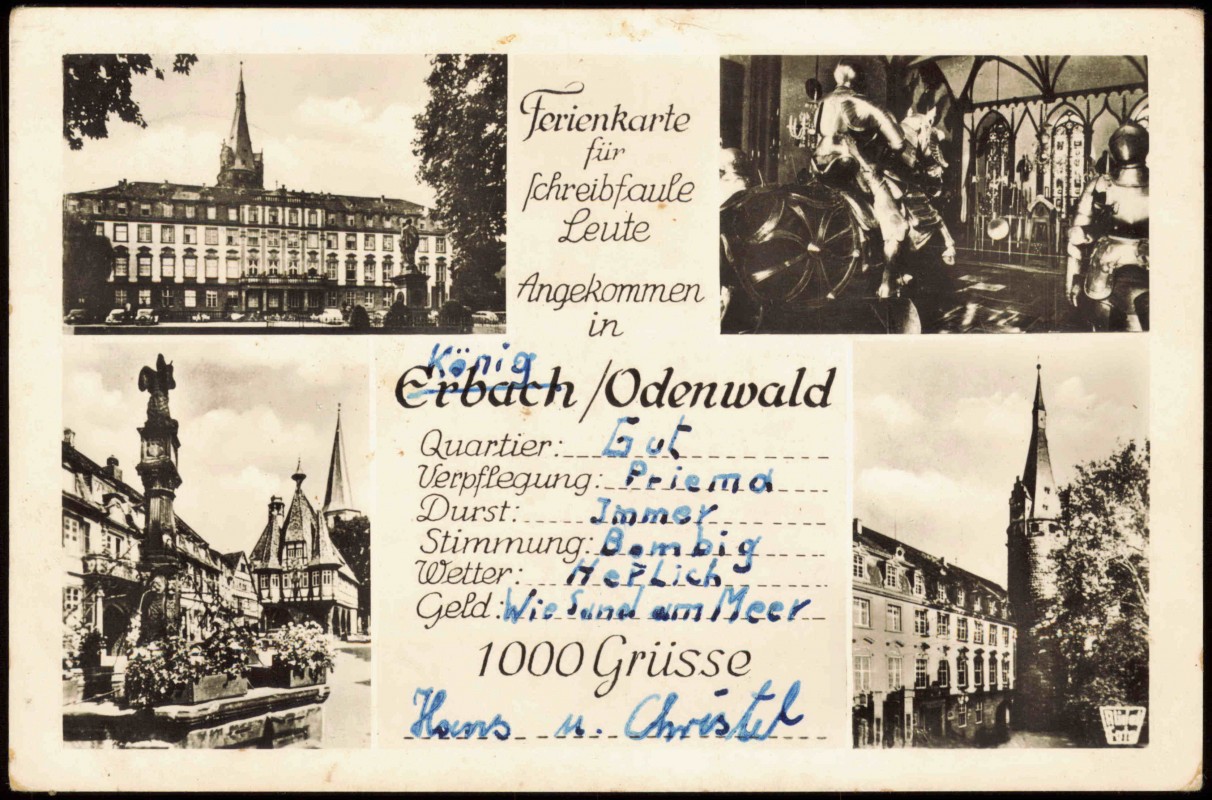 Ferienkarte
für
schreibfaule
Leute
Angekommen
in
König
Erbach /Odenwald
Quartier: Gut
Verpflegung: Priema
Durst: Immer
Stimmung: Bombig
Wetter: Herlich
Geld: Wie Sand am Meer
1000 Grüsse
Hans u. Christel